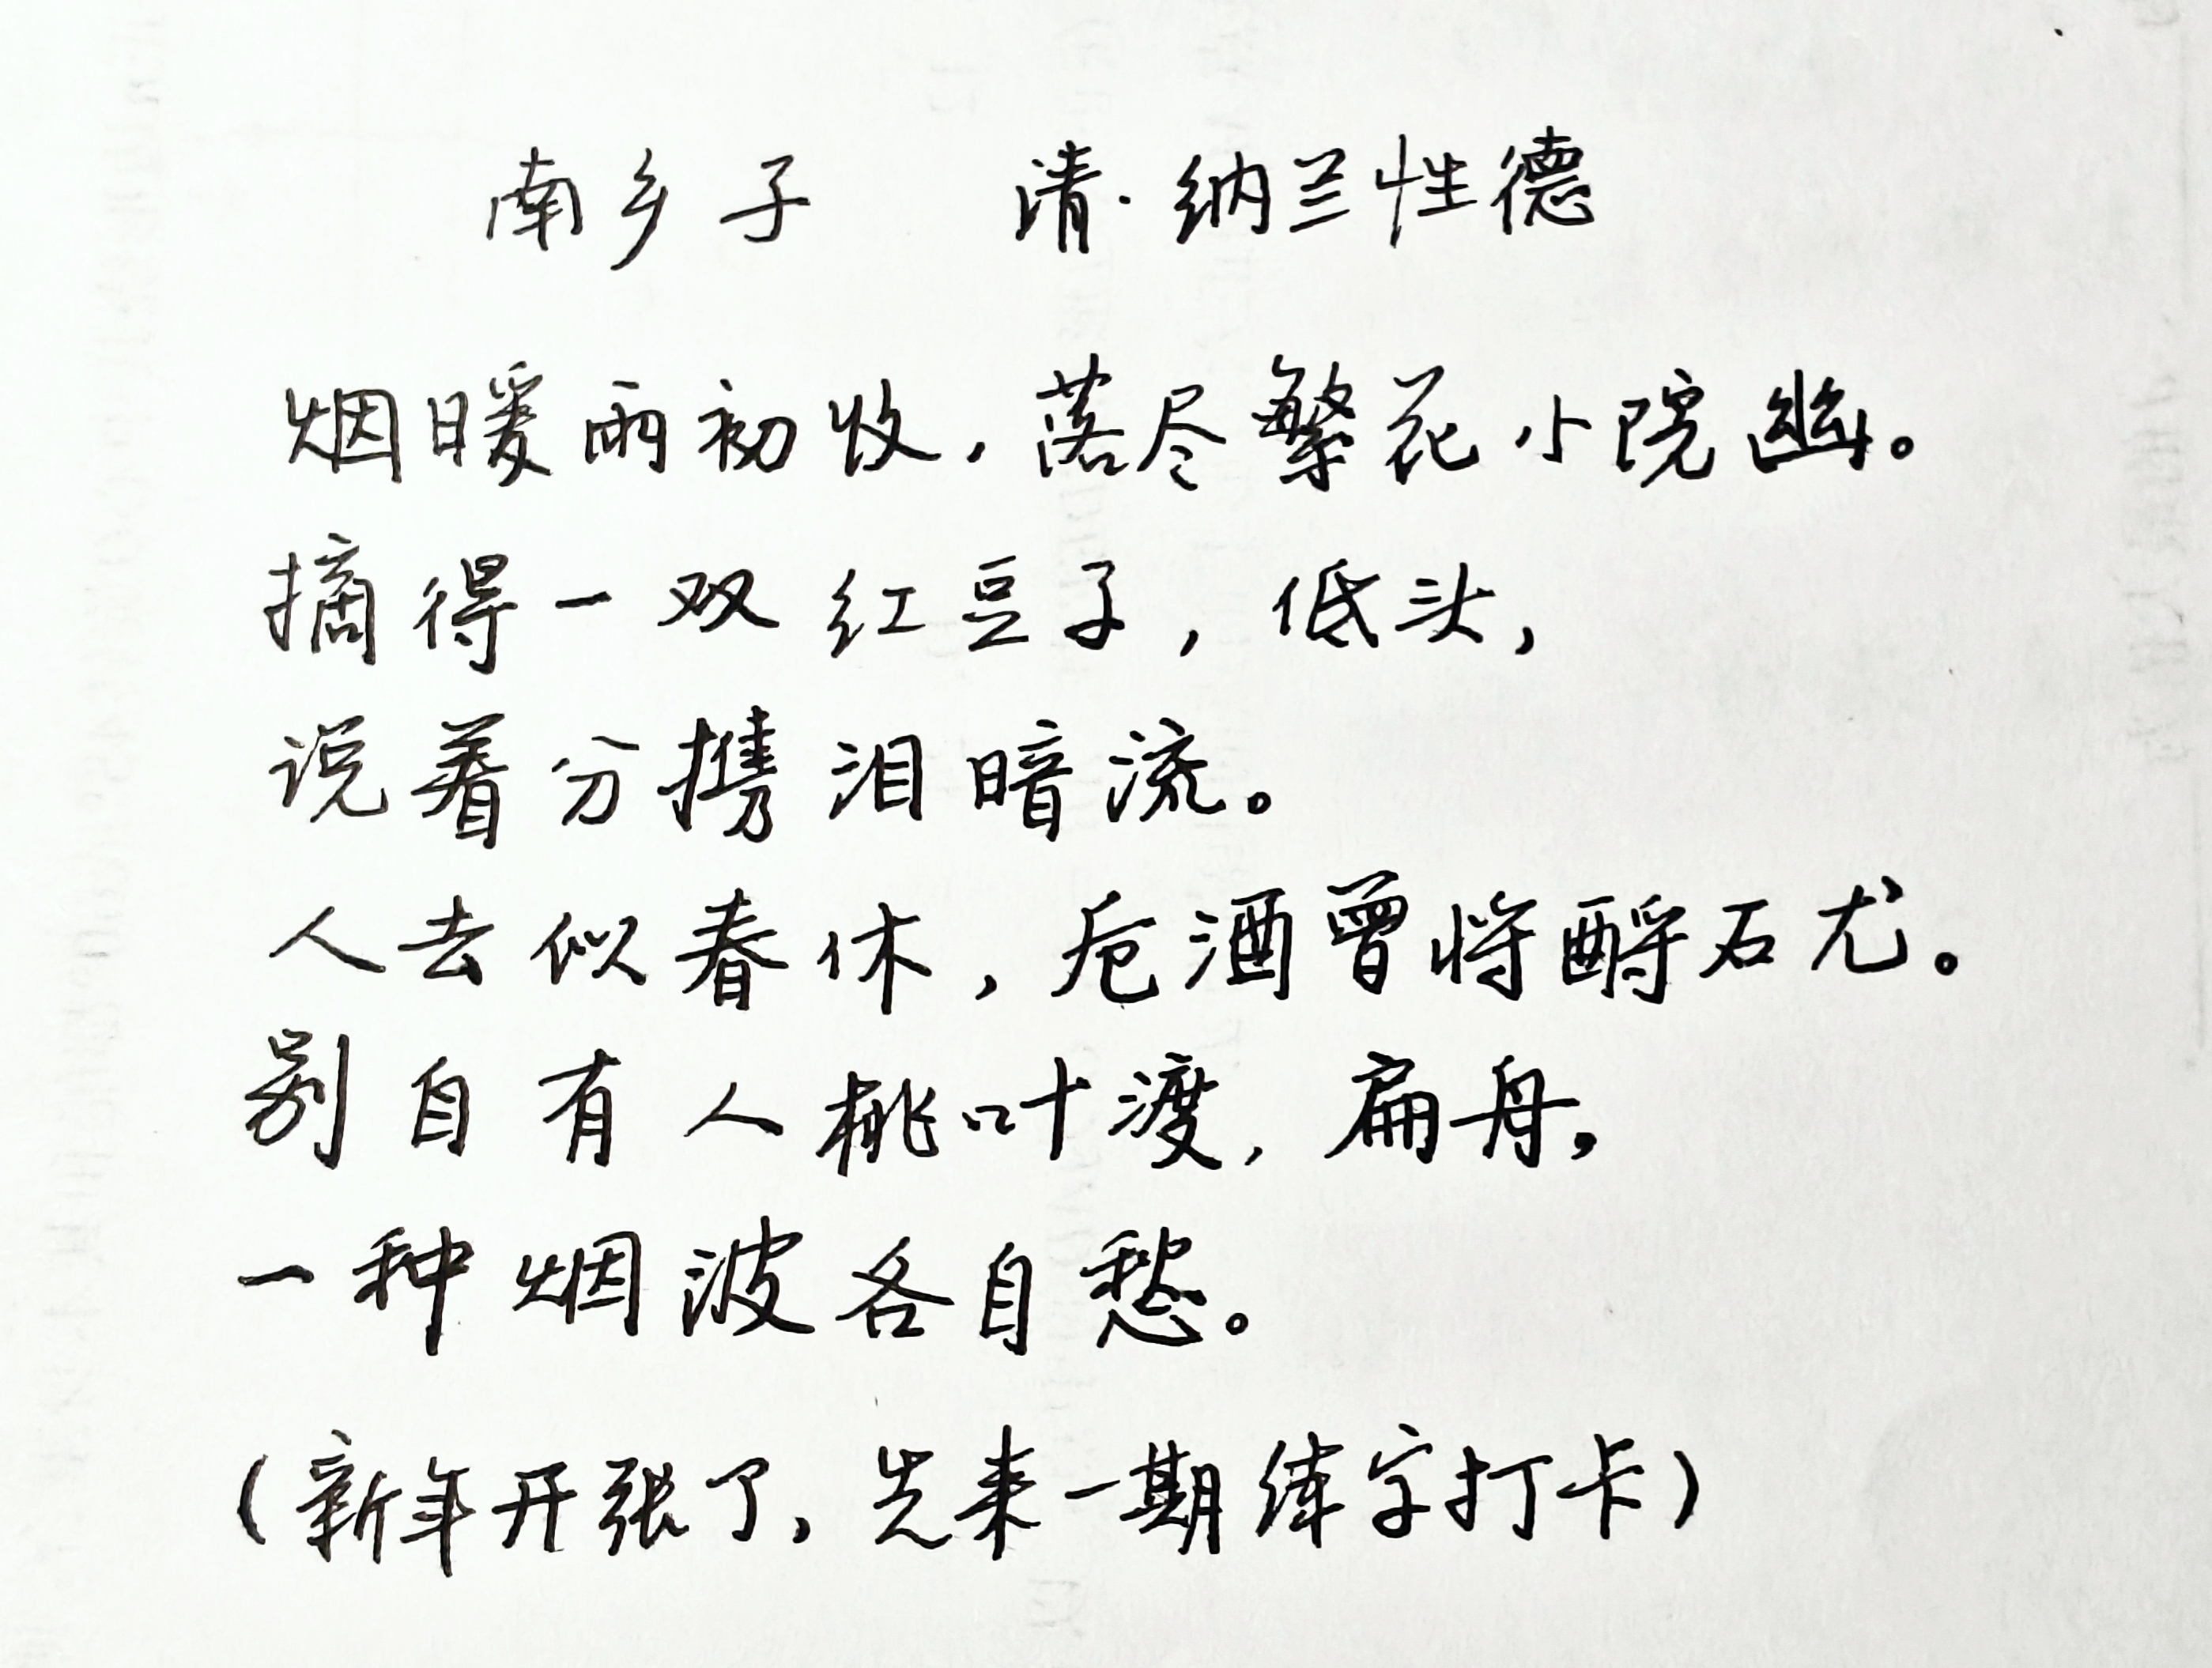 南乡子 清·纳兰性德
烟暖雨初收，落尽繁花小院幽。
摘得一双红豆子，低头，
说着分携泪暗流。
人去似春休，卮酒曾将酹石尤。
别自有人桃叶渡，扁舟，
一种烟波各自愁。
（新年开张了，先来一期练字打卡）